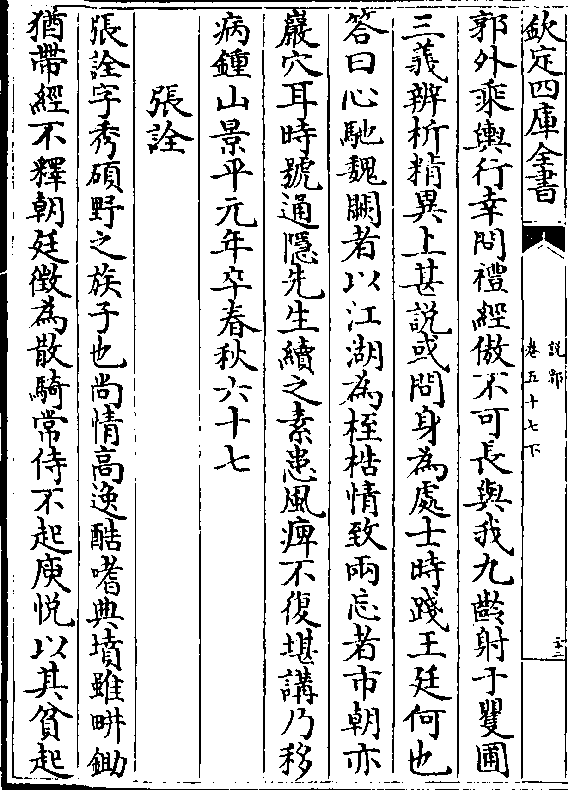 欽定四庫全書
說郛
卷五十七下
郭外乘輿行幸問禮經傲不可長與我九齡射于矍圃
三義辨析精異上甚説或問身為處士時踐王廷何也
答曰心馳魏闕者以江湖為桎梏情致兩忘者市朝亦
巖穴耳時號通隱先生續之素患風痺不復堪講乃移
病鍾山景平元年卒春秋六十七
張詮
張詮字秀碩野之族子也尚情高逸酷嗜典墳雖畊鋤
猶帶經不釋朝廷徵為散騎常侍不起庾悅以其貧起